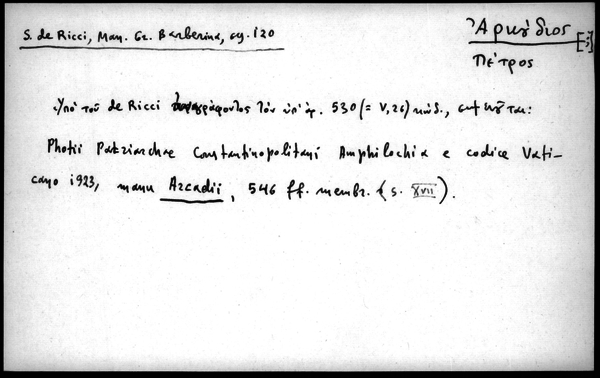 S. de Ricci, Man. Gr. Barberina, σχ. 120
Ἀρκάδιος [;]
Πέτρος
Ὑπὸ τοῦ de Ricci περιγράφοντος τὸν ὑπ' ἀρ. 530 (= V, 26) κώδ.,
Photii Patriarchae Constantinopolitani Amphilochia e codice Vati-
cano 1923, manu Arcadii, 546 ff. membr. (s. XVII).